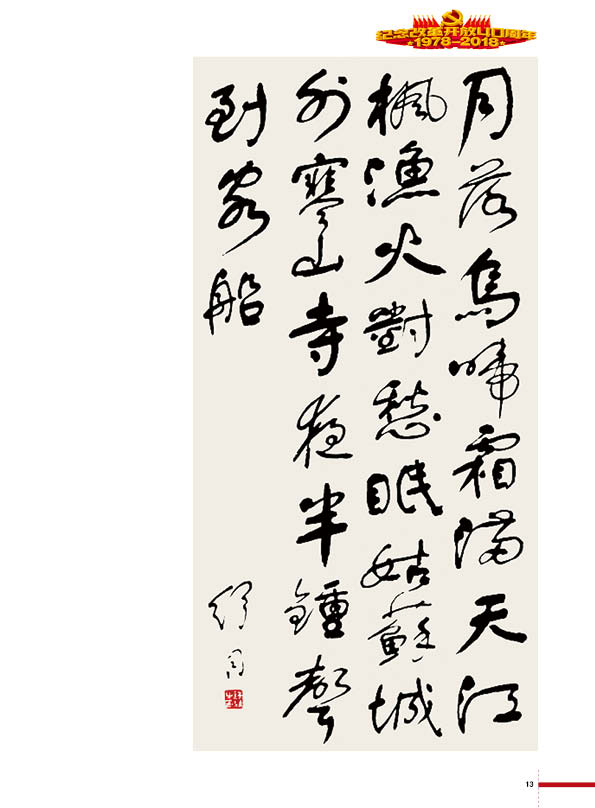 纪念改革开放40周年
1978-2018
月落烏啼霜滿天江
楓漁火對愁眠姑蘇城
外寒山寺夜半鐘聲
到客船
舒同
13